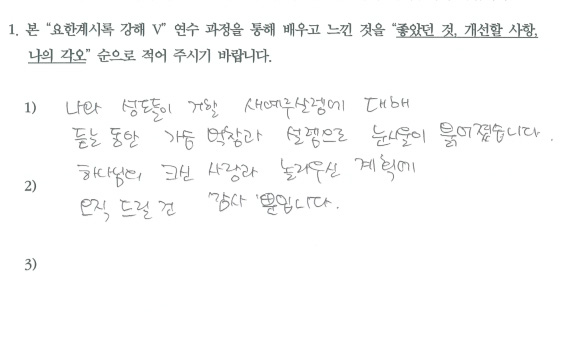 1. 본 “요한계시록 강해 Ⅴ” 연수 과정을 통해 배우고 느낀 것을 “좋았던 것, 개선할 사항,
나의 각오” 순으로 적어 주시기 바랍니다.
1) 나와 성도들이 거할 새예루살렘에 대해
듣는 동안 가슴 벅참과 설렘으로 눈시울이 붉어졌습니다.
하나님의 크신 사랑과 놀라우신 계획에
2)
오직 드릴 건 감사 뿐입니다.
3)